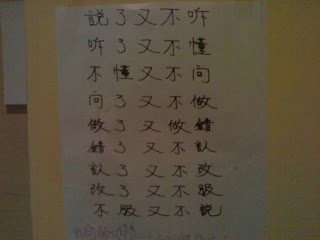 說了又不听
听了又不懂
不懂又不问
问了又不做
做了又做錯
錯了又不認
認了又不改
改了又不服
不服又不說